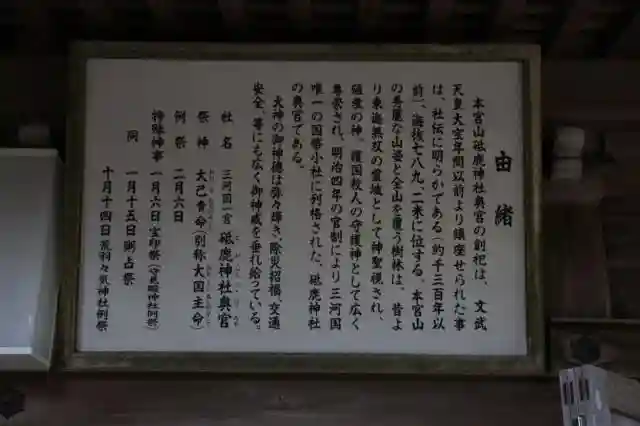 由緒
本宮山砥鹿神社奥宮の創祀は、文武
天皇大宝年間以前より鎮座せられた事
は、社伝に明らかである(約千三百年以
前)、海抜七八九、二米に位する。本宮山
の秀麗な山姿と全山を覆う樹林は、昔よ
り東海無双の霊域として神聖視され、
殖産の神、護国救人の守護神として広く
尊崇され、明治四年の官制により三河国
唯一の国幣小社に列格された、砥鹿神社
の奥宮である。
大神の御神徳は弥々輝き、除災招福、交通
安全、等にもなく御神威を垂れ給っている。
社名 三河国一宮 砥鹿神社奥宮
祭神 大己貴命(別称大国主命)
例祭 二月六日
特殊神事 一月六日宝印祭(守見殿神社例祭)
同 一月十五日粥占祭
十月十四日荒羽々気神社例祭